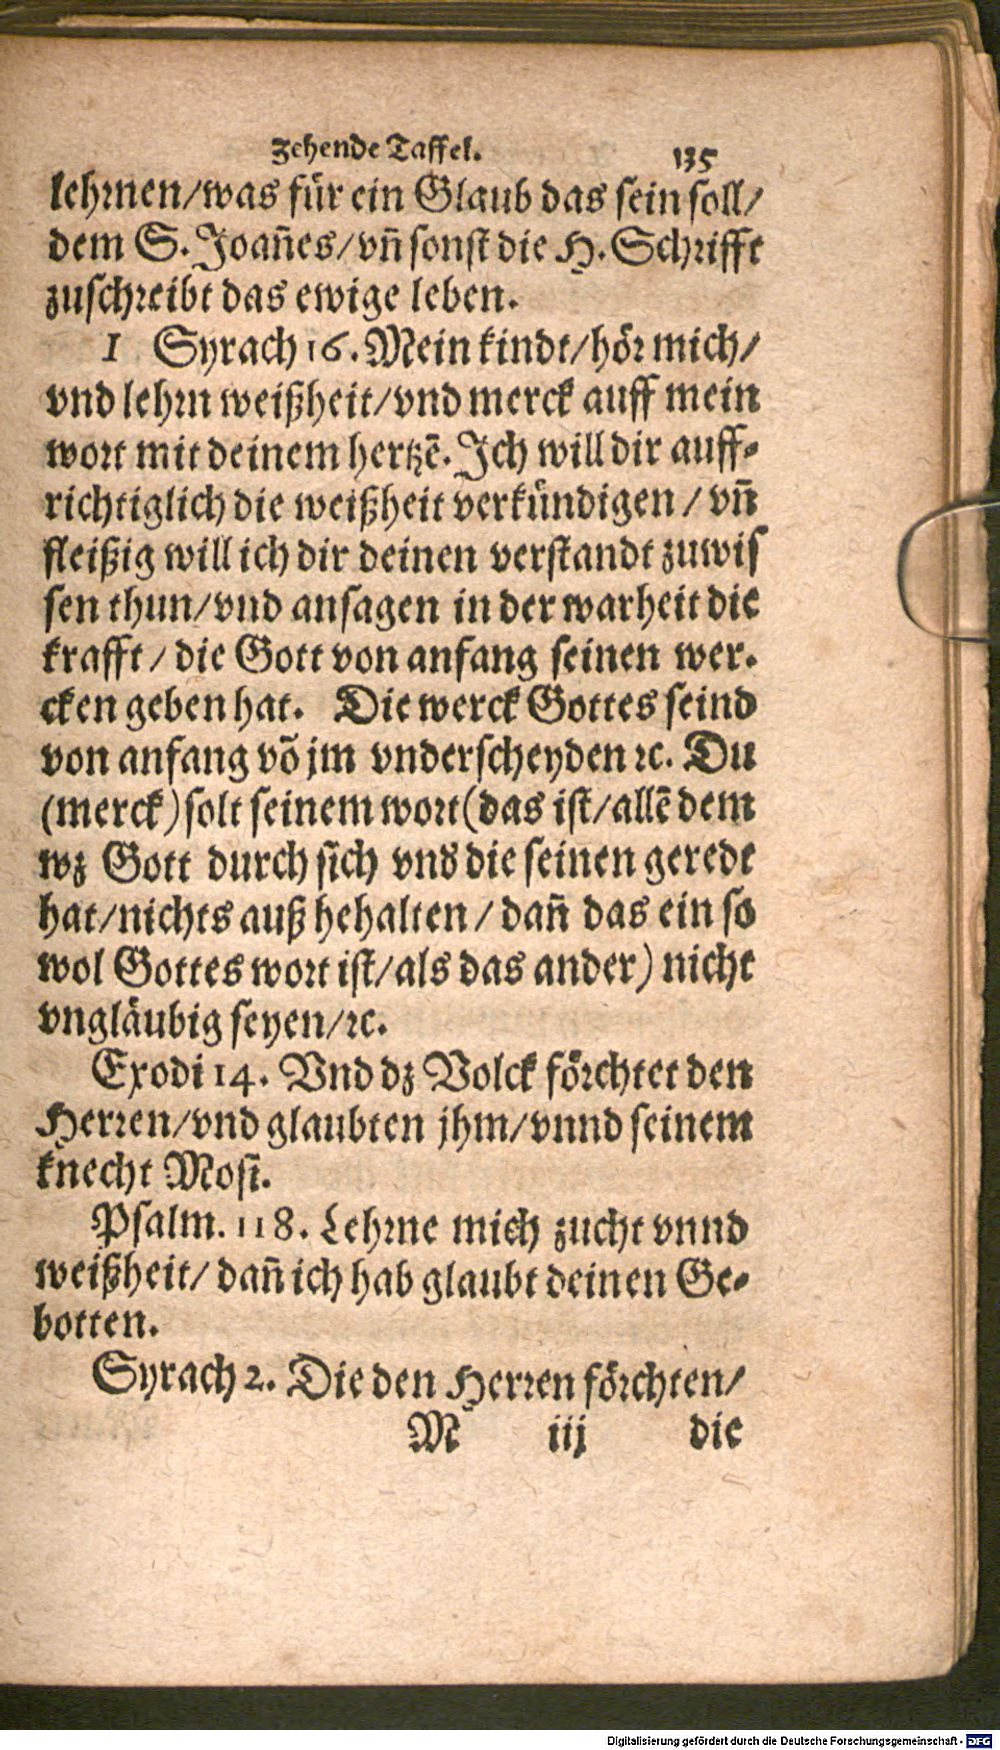 Zehende Taffel. 135
lehrnen/was für ein Glaub das sein soll/
dem S. Joan̄es/vn̄ sonst die H. Schrifft
zuschreibt das ewige leben.
1 Syrach 16. Mein kindt/hör mich/
vnd lehrn weißheit/vnd merck auff mein
wort mit deinem hertzē. Ich will dir auff-
richtiglich die weißheit verkündigen/vn̄
fleißig will ich dir deinen verstandt zuwis
sen thun/vnd ansagen in der warheit die
krafft/die Gott von anfang seinen wer-
cken geben hat. Die werck Gottes seind
von anfang vō jm vnderscheyden ꝛc. Du
(merck) solt seinem wort (das ist/allē dem
wz Gott durch sich vnd die seinen geredt
hat/nichts auß hehalten/dan̄ das ein so
wol Gottes wort ist/als das ander) nicht
vngläubig seyen/ꝛc.
Exodi 14. Vnd dz Volck förchtet den
Herren/vnd glaubten jhm/vnnd seinem
knecht Mosi.
Psalm. 118. Lehrne mich zucht vnnd
weißheit/dan̄ ich hab glaubt deinen Ge-
botten.
Syrach 2. Die den Herren förchten/
M iij die
Digitalisierung gefördert durch die Deutsche Forschungsgemeinschaft - DFG